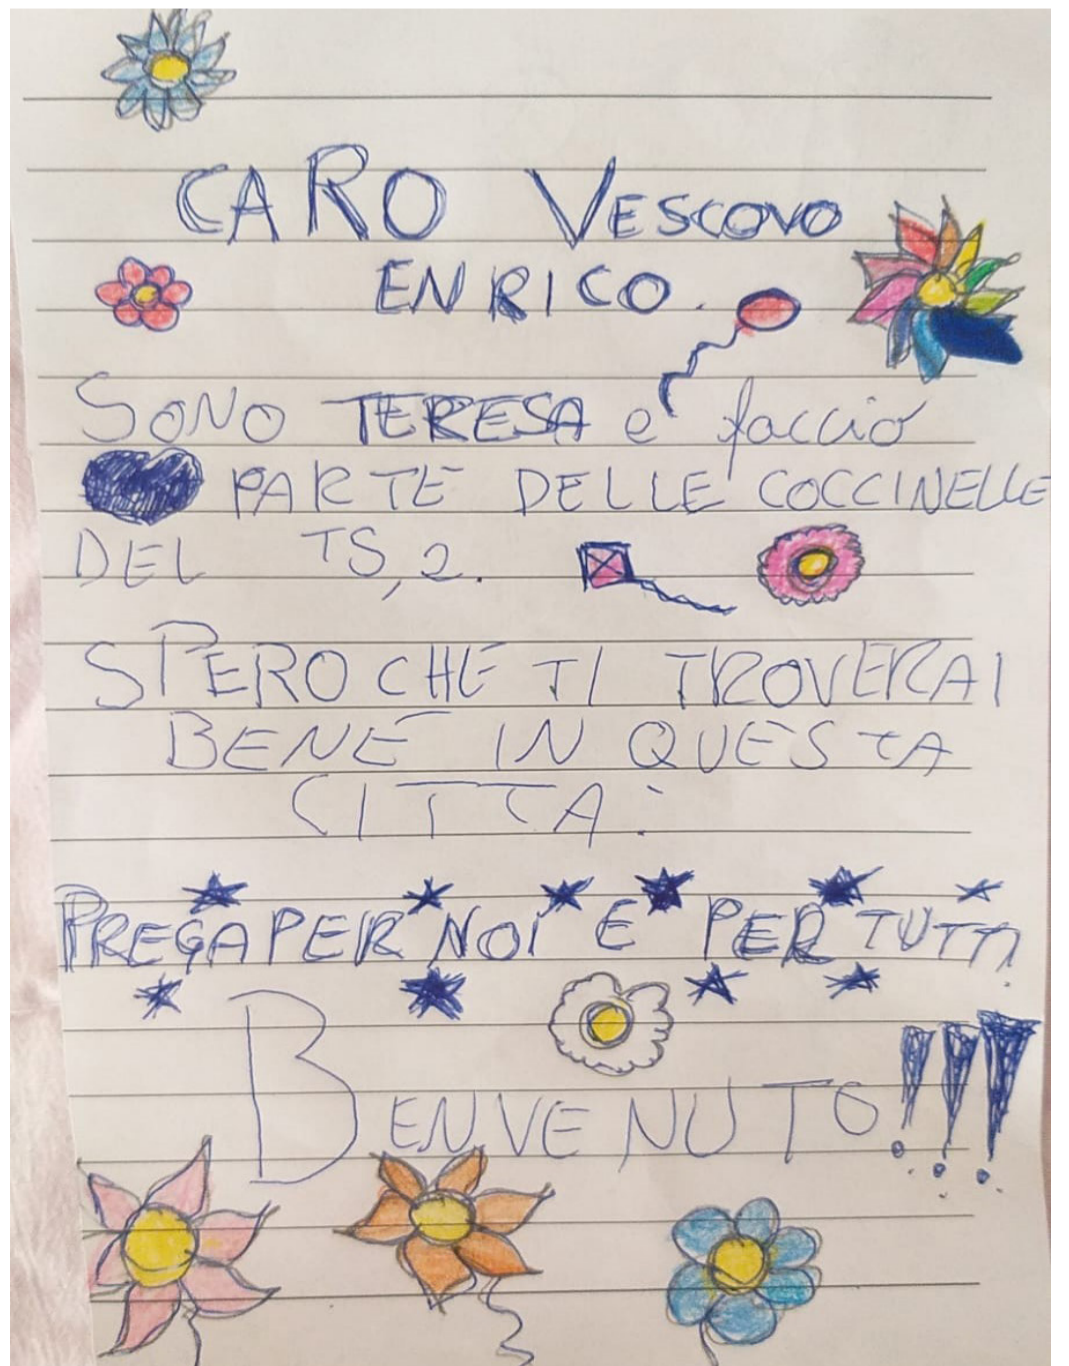 CARO VESCOVO
ENRICO.
SONO TERESA e faccio
PARTE DELLE COCCINELLE
DEL TS,2.
SPERO CHE TI TROVERAI
BENE IN QUESTA
CITTA'
PREGA PER NOI E PER TUTTI
BENVENUTO!!!